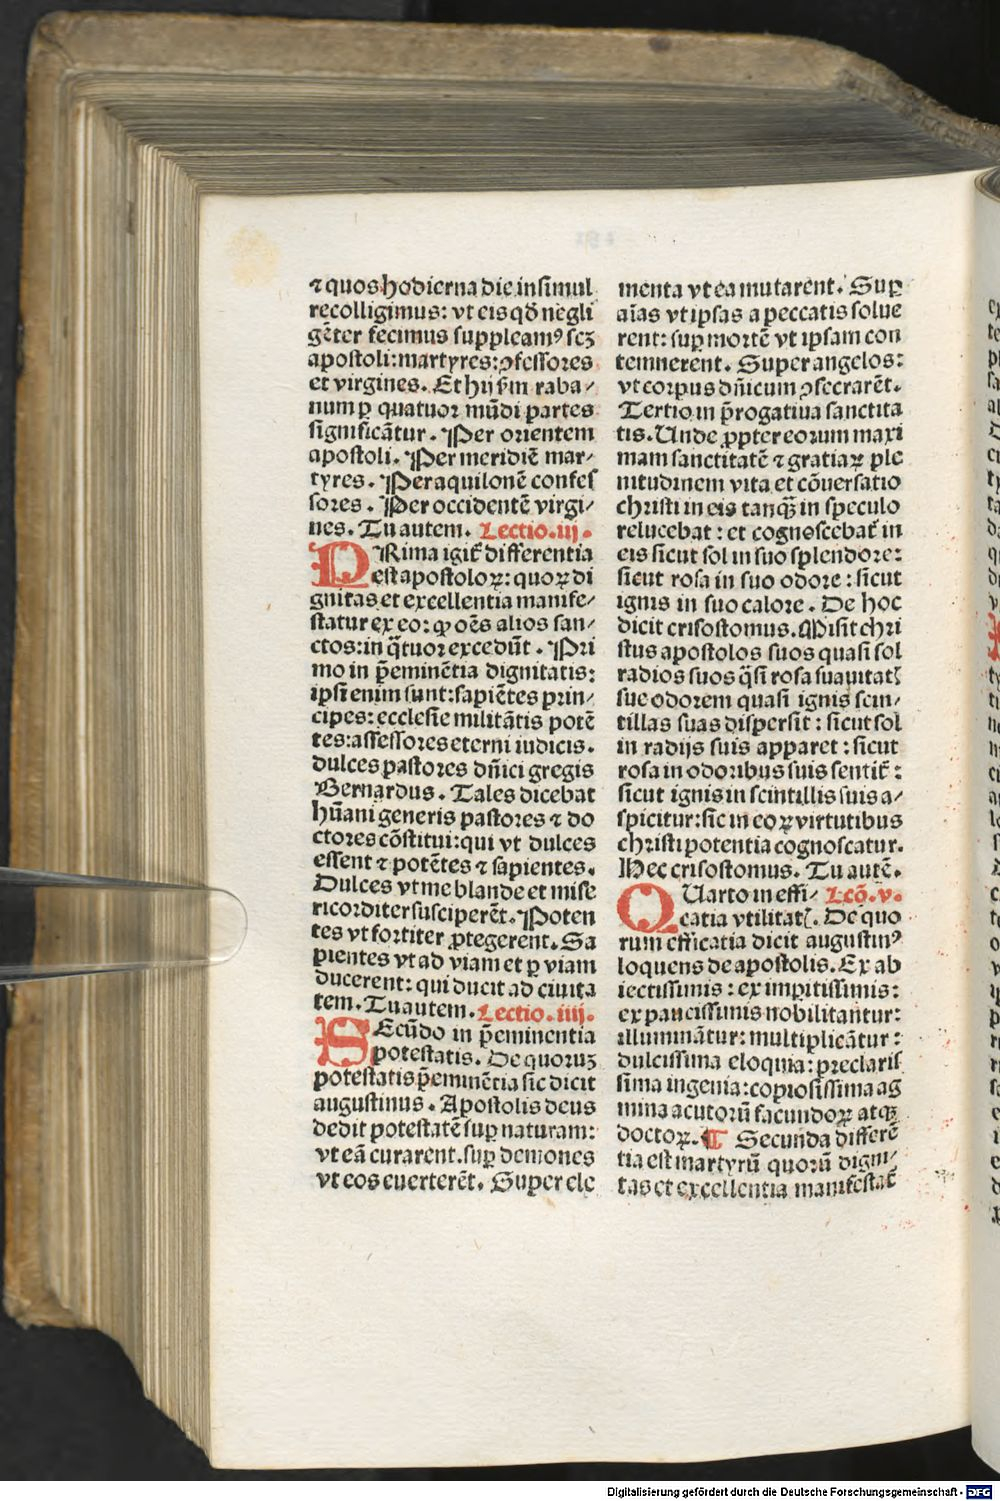 ⁊ quos hodierna die insimul
recolligimus: vt eis qd̄ negli
gēter fecimus suppleamꝰ scꝫ
apostoli: martyres: ꝯfessores
et virgines. Et hij ẜm raba⸗
num ꝑ quatuor mūdi partes
significātur. Per orientem
apostoli. Per meridiē mar⸗
tyres. Per aquilonē confes
sores. Per occidentē virgi⸗
nes. Tu autem. Lectio.iij.
PRima igit̄ differentia
est apostoloꝝ: quoꝝ di
gnitas et excellentia manife⸗
statur ex eo: ꝙ oēs alios san⸗
ctos: in q̄tuor excedūt. Pri
mo in p̄eminētia dignitatis:
ipsi enim sunt: sapiētes prin⸗
cipes: ecclesie militātis potē
tes: assessores eterni iudicis.
dulces pastores dn̄ici gregis
Bernardus. Tales dicebat
hūani generis pastores ⁊ do
ctores cōstitui: qui vt dulces
essent ⁊ potētes ⁊ sapientes.
Dulces vt me blande et mise
ricorditer susciperēt. Poten
tes vt fortiter ꝓtegerent. Sa
pientes vt ad viam et ꝑ viam
ducerent: qui ducit ad ciuita
tem. Tu autem. Lectio.iiij.
SEcūdo in p̄eminentia
potestatis. De quoruꝫ
potestatis p̄eminētia sic dicit
augustinus. Apostolis deus
dedit potestatē suꝑ naturam:
vt eā curarent. suꝑ demones
vt eos euerterēt. Super ele
menta vt ea mutarent. Suꝑ
aīas vt ipsas a peccatis solue
rent: suꝑ mortē vt ipsam con
temnerent. Super angelos:
vt corpus dn̄icum ꝯsecrarēt.
Tertio in p̄rogatiua sanctita
tis. Unde ꝓpter eorum maxi
mam sanctitatē ⁊ gratiaꝝ ple
nitudinem vita et cōuersatio
christi in eis tanqꝫ in speculo
relucebat: et cognoscebat̄ in
eis sicut sol in suo splendore:
sicut rosa in suo odore: sicut
ignis in suo calore. De hoc
dicit crisostomus. Misit chri
stus apostolos suos quasi sol
radios suos q̄si rosa suauitatꝭ
sue odorem quasi ignis scin⸗
tillas suas dispersit: sicut sol
in radijs suis apparet: sicut
rosa in odoribus suis sentit̄:
sicut ignis in scintillis suis a⸗
spicitur: sic in eoꝝ virtutibus
christi potentia cognoscatur.
Hec crisostomus. Tu autē.
QUarto in effi⸗ Lcō.v.
catia vtilitatꝭ. De quo
rum efficatia dicit augustinꝰ
loquens de apostolis. Ex ab
iectissimis: ex imꝑitissimis:
ex paucissimis nobilitantur:
illuminātur: multiplicātur:
dulcissima eloquia: preclaris
sima ingenia: copiosissima ag
mina acutorū facundoꝝ atqꝫ
doctoꝝ. ¶ Secunda differē
tia est martyrū quorū digni⸗
tas et excellentia manifestat̄
Digitalisierung gefördert durch die Deutsche Forschungsgemeinschaft - DFG